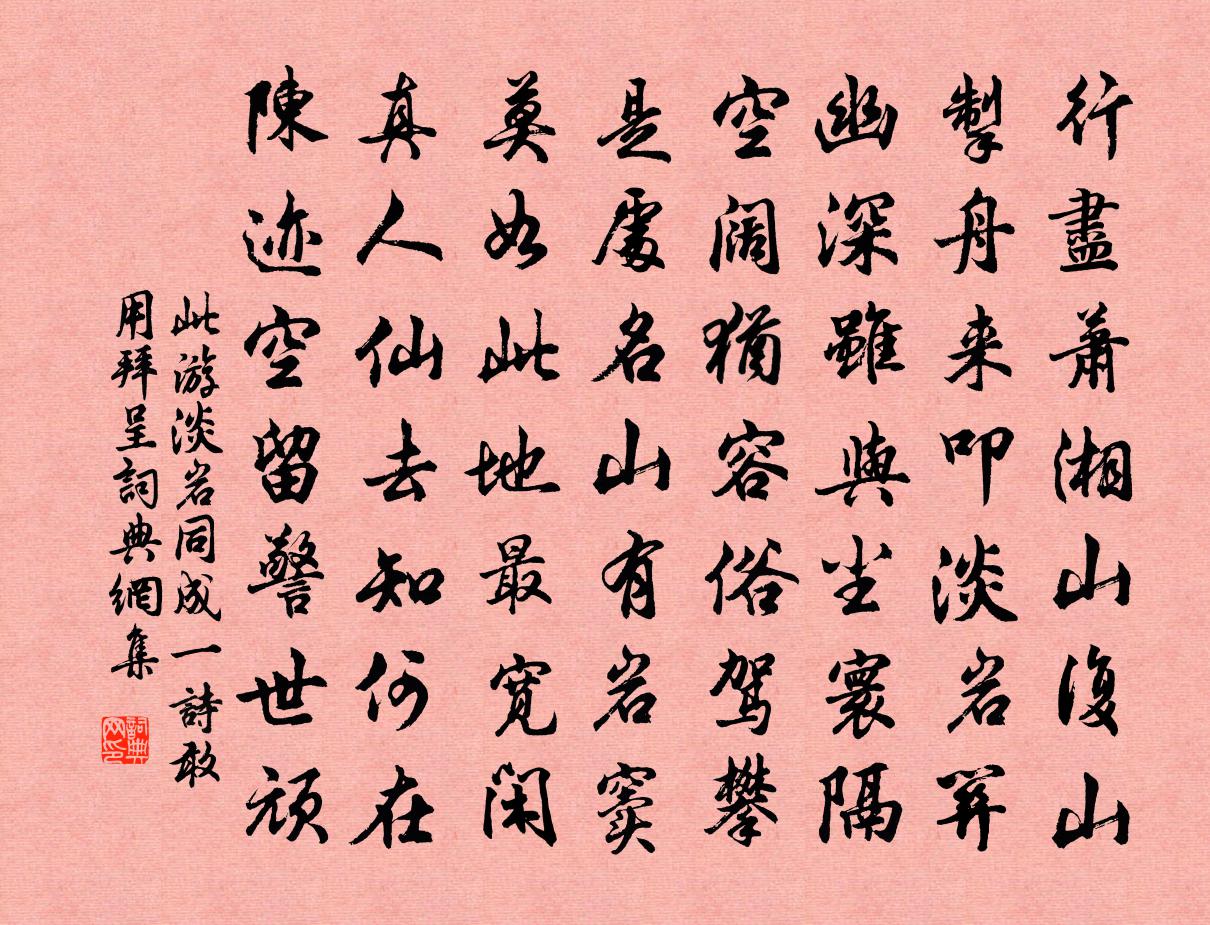 行盡蕭湘山復山
掣舟来叩淡岩關
幽深雖與尘寰隔
空阔猶容俗駕攀
是處名山有岩竇
莫如此地最寬閑
真人仙去知何在
陳迹空留警世頑
此游淡岩同成一詩敢
用拜呈詞典網集
詞典网印